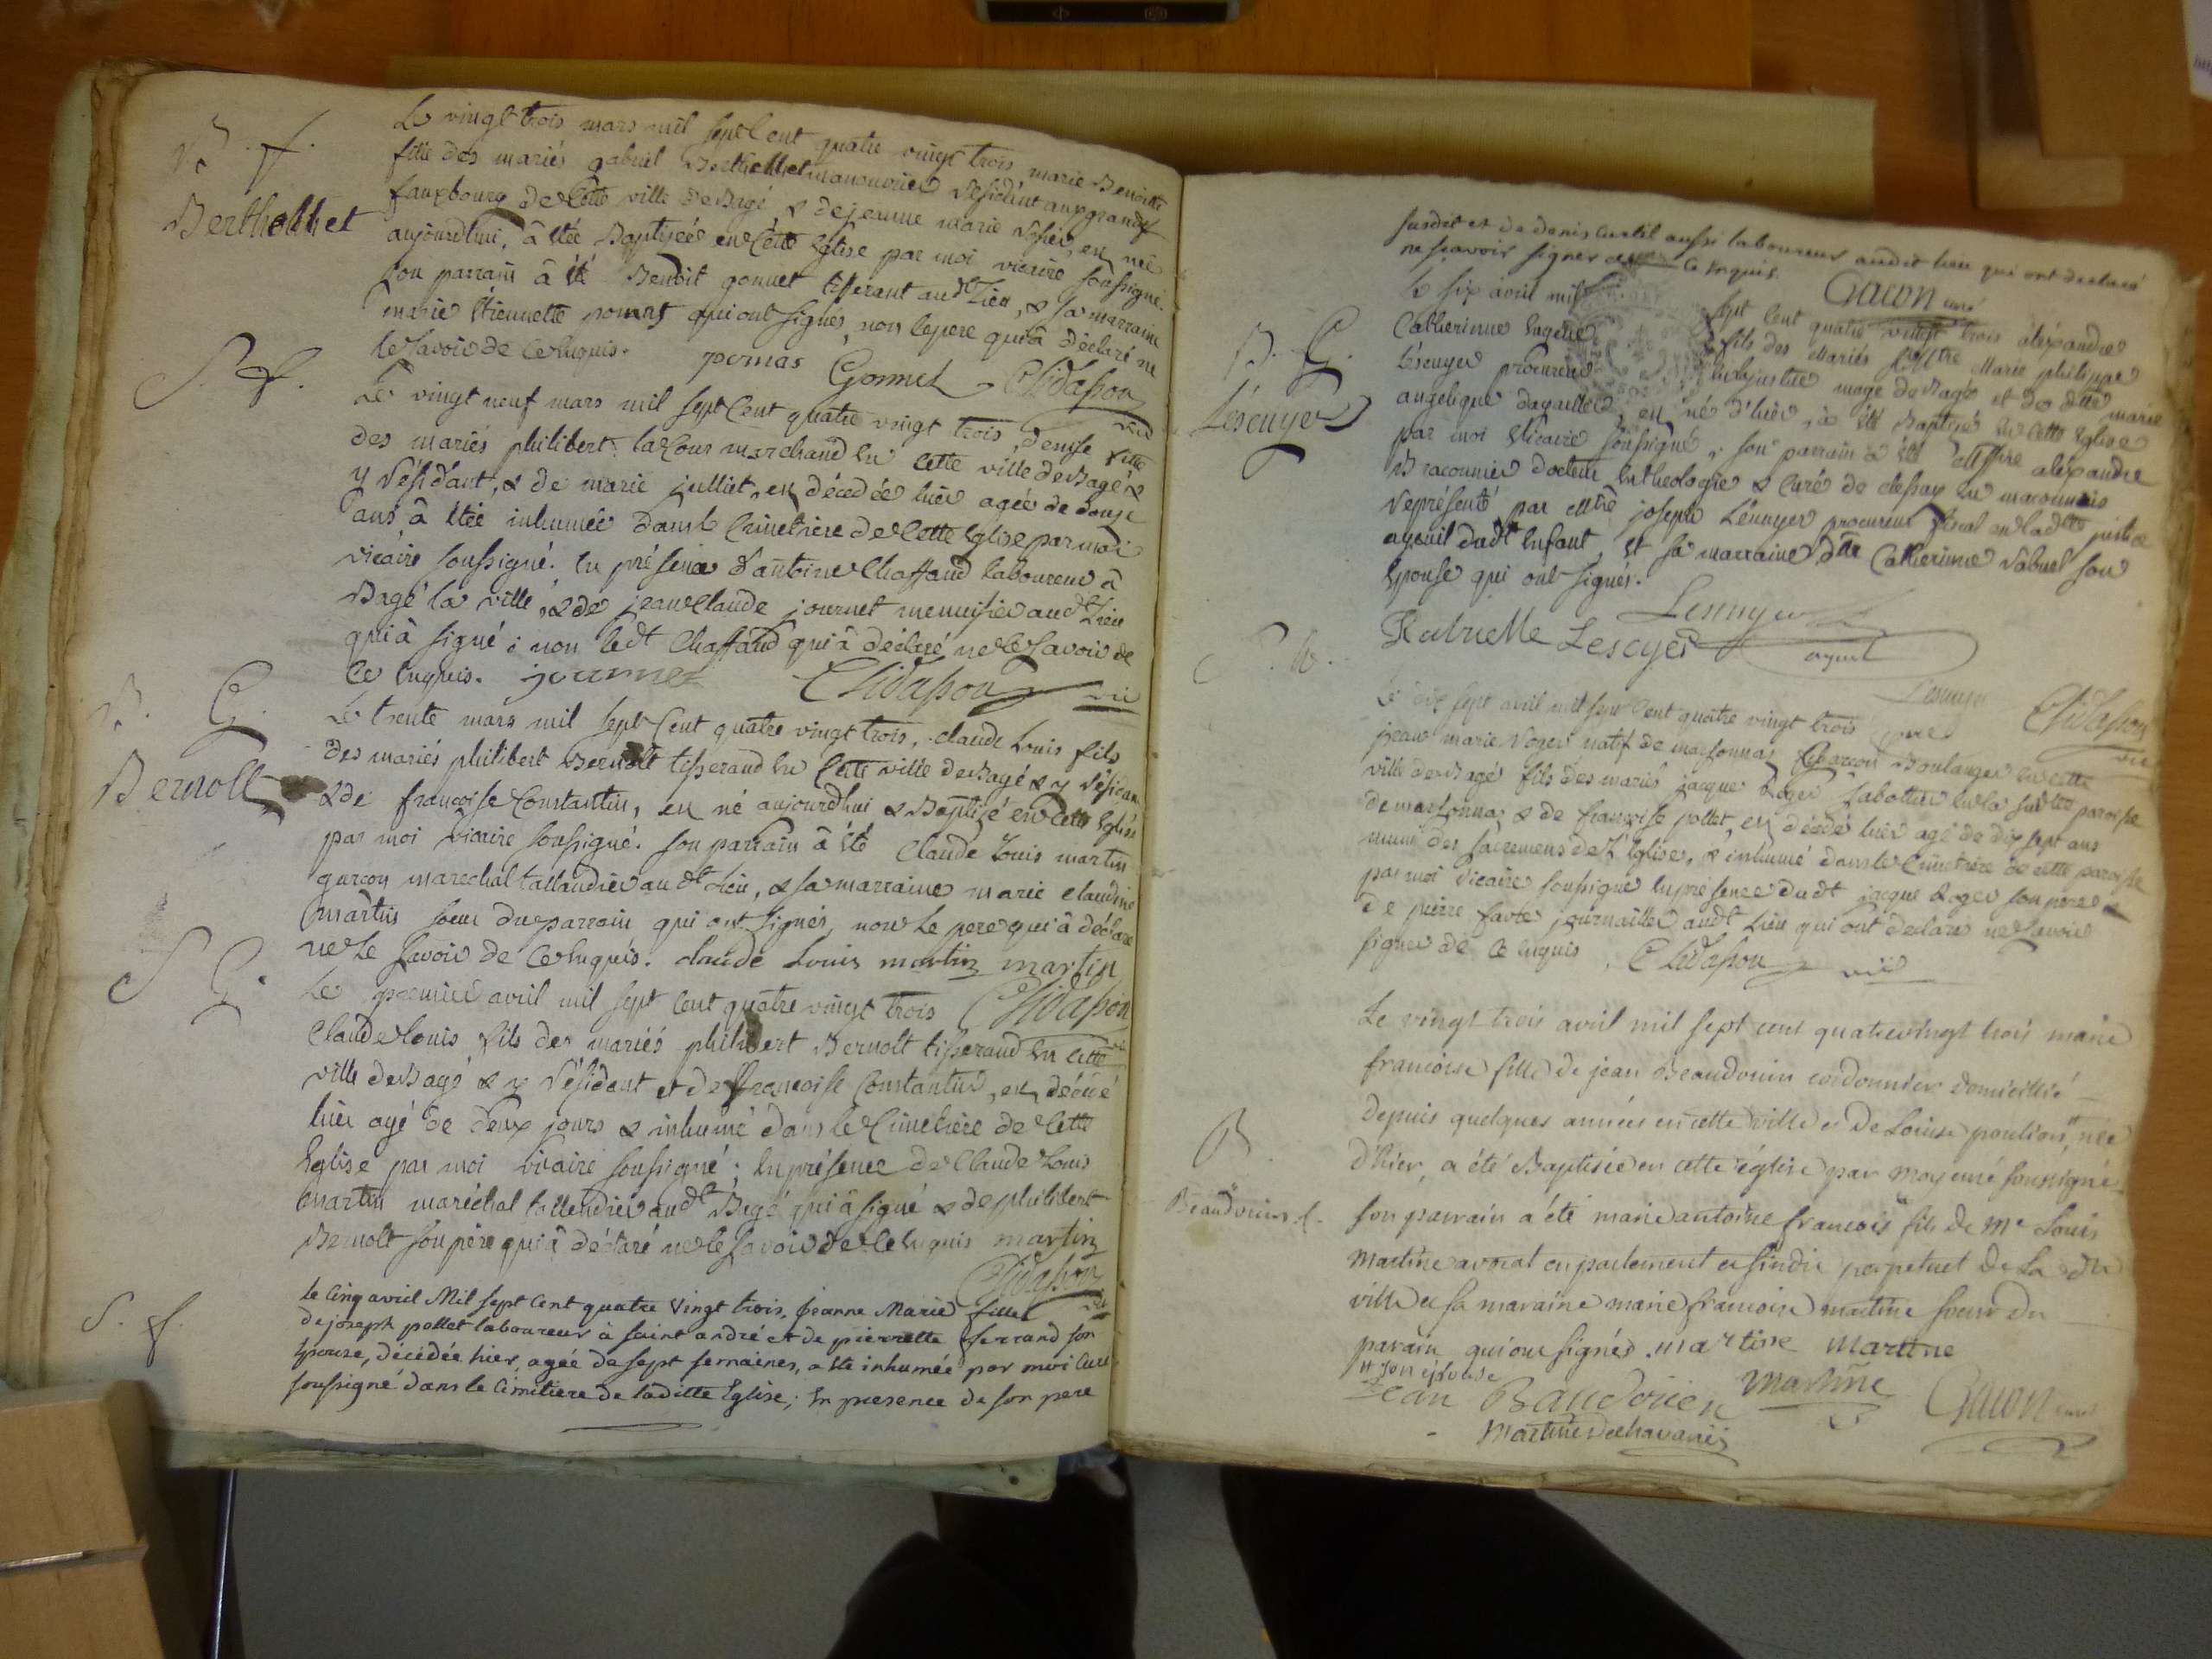 B. f.
Berthellet
Le vingt trois mars mil sept Cent quatre vingt trois marie Benoitte
fille des mariés gabriel Berthellet manouvrier Résidént aux grands
fauxbourg de Cette ville de Bagé & de jeanne marie en née
aujourdhui, â étée Baptisée en Cette Eglise par moi vicaire soussigné.
son parrain â été Benoit gonnet tisserant aud.t Lieu, & sa marraine
marie Etiennette pomas qui ont signés, non le pere qui â déclaré ne
le savoir de Ce Enquis. pomas Gonnet Chidasson
vic
S. f.
Le vingt neuf mars mil sept Cent quatre vingt trois, denise fille
des mariés philibert marchand En Cette ville de Bagé &
y Résidant, & de marie julliet, en décedée hier agée de douze
ans, â étée inhumée dans le Cimetière de Cette Eglise par moi
vicaire soussigné. En présence d'antoine Chaffaud laboureur à
Bagé la ville, & de jean Claude journet menuisier aud.t Lieu
qui â signé ; non led.t Chaffaud qui â déclaré ne le savoir de
Ce Enquis. journet Chidasson vic
B. G.
Bernolt
Le trente mars mil sept Cent quatre vingt trois, Claude Louis fils
des mariés philibert Bernolt tisserand En Cette ville de Bagé & y Résidant
& de françoise Constantin, en né aujourdhui & Baptizé en Cette Eglise
par moi vicaire soussigné. son parrain â été Claude Louis martin
garçon marechal taillandier aud.t Lieu, & sa marraine marie Claudine
martin soeur du parrain qui ont signés, non le pere qui â déclaré
ne le savoir de Ce Enquis. claude Louis martin martin
Chidasson
S G.
Le premier avril mil sept Cent quatre vingt trois
Claude Louis fils des mariés philibert Bernolt tisserand En Cette
ville de Bagé & y Résidant et de françoise Constantin, en décédé
hier agé de deux jours & inhumé dans le Cimetière de Cette
Eglise par moi vicaire soussigné ; En présence de Claude Louis
martin maréchal taillendier aud.t Bagé qui â signé & de philibert
Bernolt son père qui â déclaré ne le savoir de Ce Enquis martin
Chidasson
vic
S. f.
le Cinq avril Mil sept Cent quatre Vingt trois, jeanne Marie fille
de joseph pollet laboureur à saint andré et de pierrette ferrand son
Epouse, décédée hier, agée de sept semaines, a été inhumée par moi Curé
soussigné dans le Cimitiere de laditte Eglise ; En presence de son pere
susdit et de denis Curtil aussi laboureur audit lieu qui ont declaré
ne scavoir signer de Ce Enquis. Gacon curé
B. G.
Lescuyer
Le six avril mil sept Cent quatre vingt trois aléxandre
Catherinne Eugene fils des Mariés M.tre Marie philippe
Lescuyer procureur En la justice mage de Bagé et de d.lle marie
angelique dagaillier, en né d'hier, â été Baptizé En Cette Eglise
par moi Vicaire soussigné, son parrain â été Messire aléxandre
Bracounier docteur En theologie & Curé de En maconnais
représenté par M.tre joseph Lescuyer procureur fiscal en lad.tte justice
ayeuil dud.t Enfant, et sa marraine d.lle Catherinne Rabuel son
Epouse qui ont signés.
Rabuelle Lescyer Lescuyer
ayeul
Lescuyer Chidasson
pere vic
Le dix sept avril mil sept Cent quatre vingt trois
jean marie Roger natif de marsonnas Garçon Boulanger En Cette
ville de Bagé fils des mariés jacque Roger sabottier En la sus.tte paroisse
de marsonnas & de françoise pollet, en décédé hier agé de dix sept ans
muni des sacremens de l'Eglise, & inhumé dans le Cimetière de Cette paroisse
par moi Vicaire soussigné En présence dud.t jacque Roger son pere &
de pierre favre journaillier aud.t Lieu qui ont déclaré ne savoir
signer de Ce enquis. Chidasson vic
B
Beaudouin f.
Le vingt trois avril mil sept cent quatrevingt trois marie
françoise fille de jean Beaudouin cordonnier domicillié
depuis quelques années en cette ville et de Louise poulions # née
d'hier, a été Baptisée en cette église par moy curé soussigné
son parrain a été marie antoine francois fils de Me Louis
Martine avocat en parlement et sindic perpetuel de La d.te
ville et sa maraine marie francoise martine soeur du
parain qui ont signés. martine Martine
# son épouse
Jean Baudouien Martine Gacon curé
Martine Dechavanes